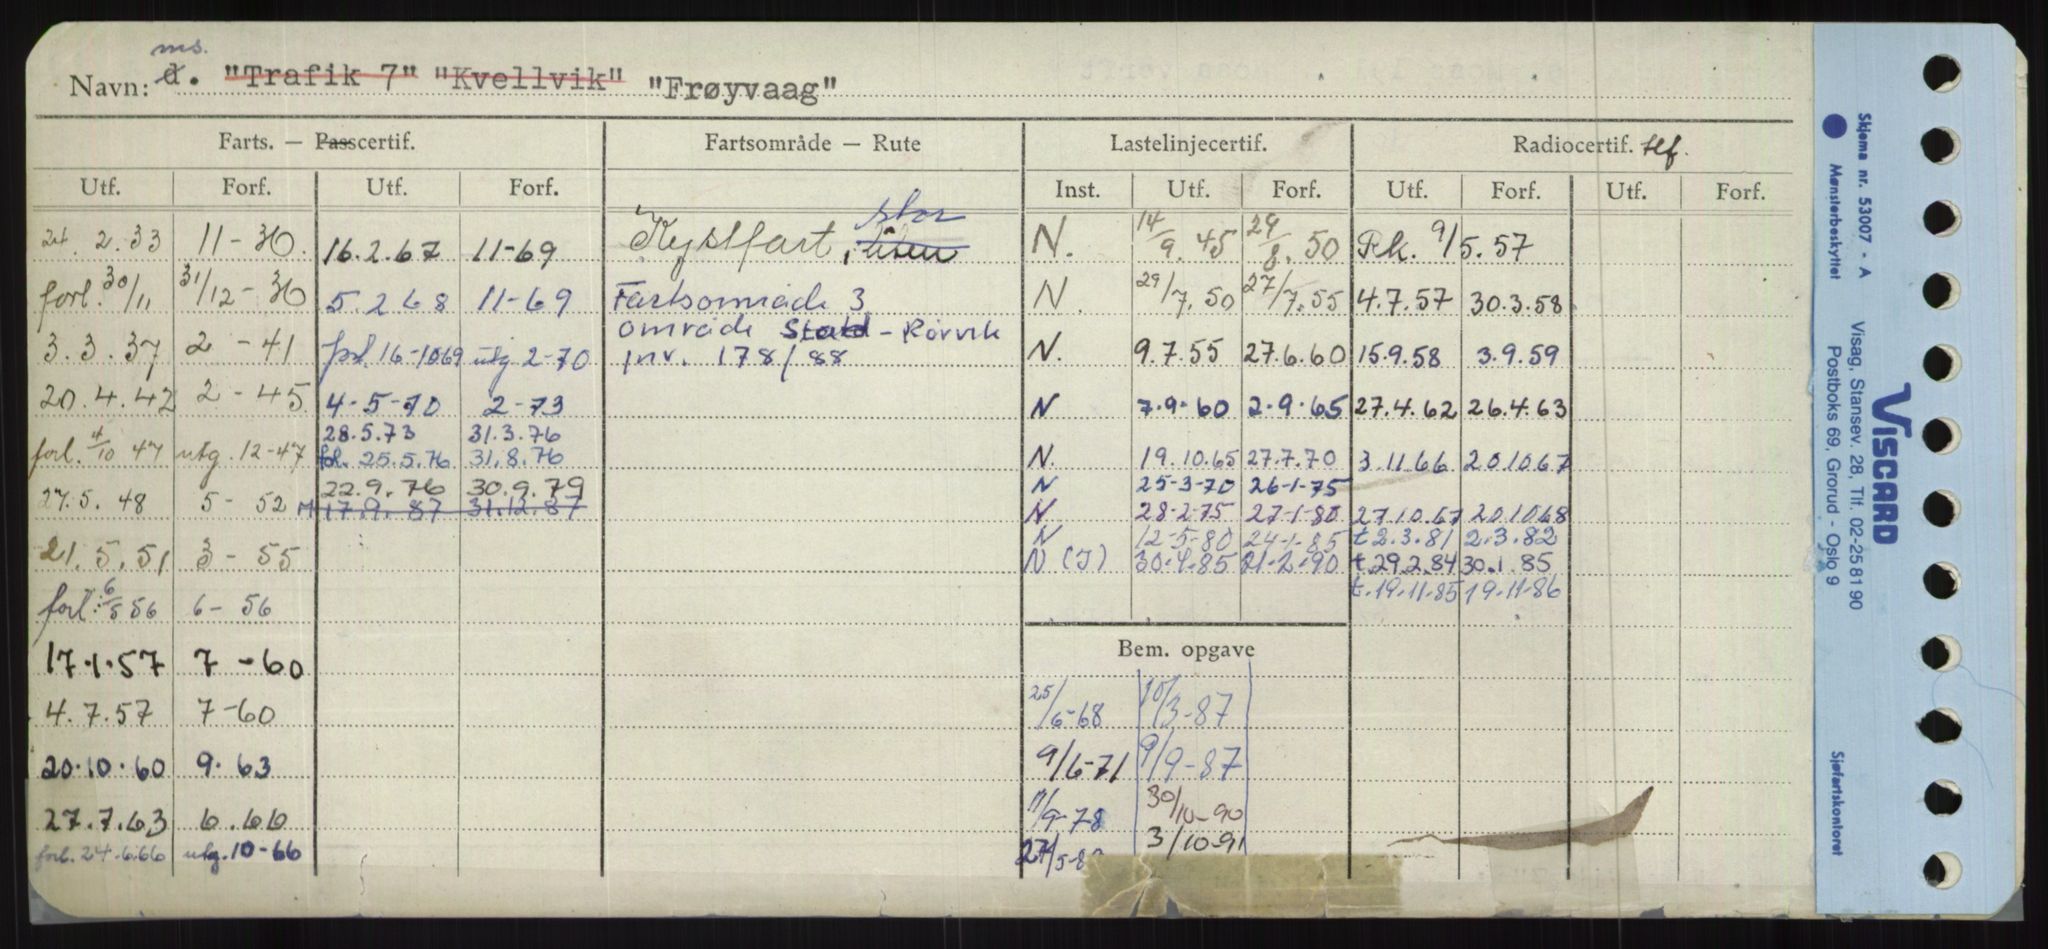 ms.
Navn: d. "Trafik 7" "Kvellvik" "Frøyvaag"
Farts. — Passcertif. Fartsområde — Rute Lastelinjecertif. Radiocertif. tlf.
Utf. Forf. Utf. Forf. Inst. Utf. Forf. Utf. Forf. Utf. Forf.
stor
24. 2.33 11-36. 16.2.67 11-69 Kystfart, liten N. 14/9.45 29/8.50 Pk. 9/5.57
forl. 30/11 31/12-36 5.2 68 11-69 Fartsområde 3 N. 29/7.50 27/7.55 4.7.57 30.3.58
område Stad - Rørvik
3.3.37 2-41 forl. 16-1069 utg 2-70 inv. 178/88 N. 9.7.55 27.6.60 15.9.58 3.9.59
20.4.42 2-45 4-5-70 2-73 N 7.9.60 2.9.65 27.4.62 26.4.63
28.5.73 31.3.76
forl. 4/10 47 utg. 12-47 fol. 25.5.76 31.8.76 N. 19.10.65 27.7.70 3.11.66 20.10.67
22.9.76 30.9.79 N 25-3-70 26-1-75
27.5.48 5-52 M 17.9.87 31.12.87 N 28-2-75 27-1-80 27.10.67 20.10.68
N 12-5-80 24-1-85 t 2.3.81 2.3.82
21.5.51 3-55 N (I) 30.4.85 21-2-90 t.29.2.84 30.1.85
forl. 6/5 56 6-56 t.19.11.85 19.11.86
17.1.57 7-60 Bem. opgave
4.7.57 7-60 25/6-68 10/3-87
20.10.60 9.63 9/6-71 9/9-87
27.7.63 6.66 11/9-78 30/10-90
forl. 24.6.66 utg. 10-66 27/5-8 3/10-91
Skjema nr. 53007 - A
Mønsterbeskyttet
VISCARD
Visag, Stansev. 28, Tlf. 02-25 81 90
Postboks 69, Grorud - Oslo 9
Sjøfartskontoret